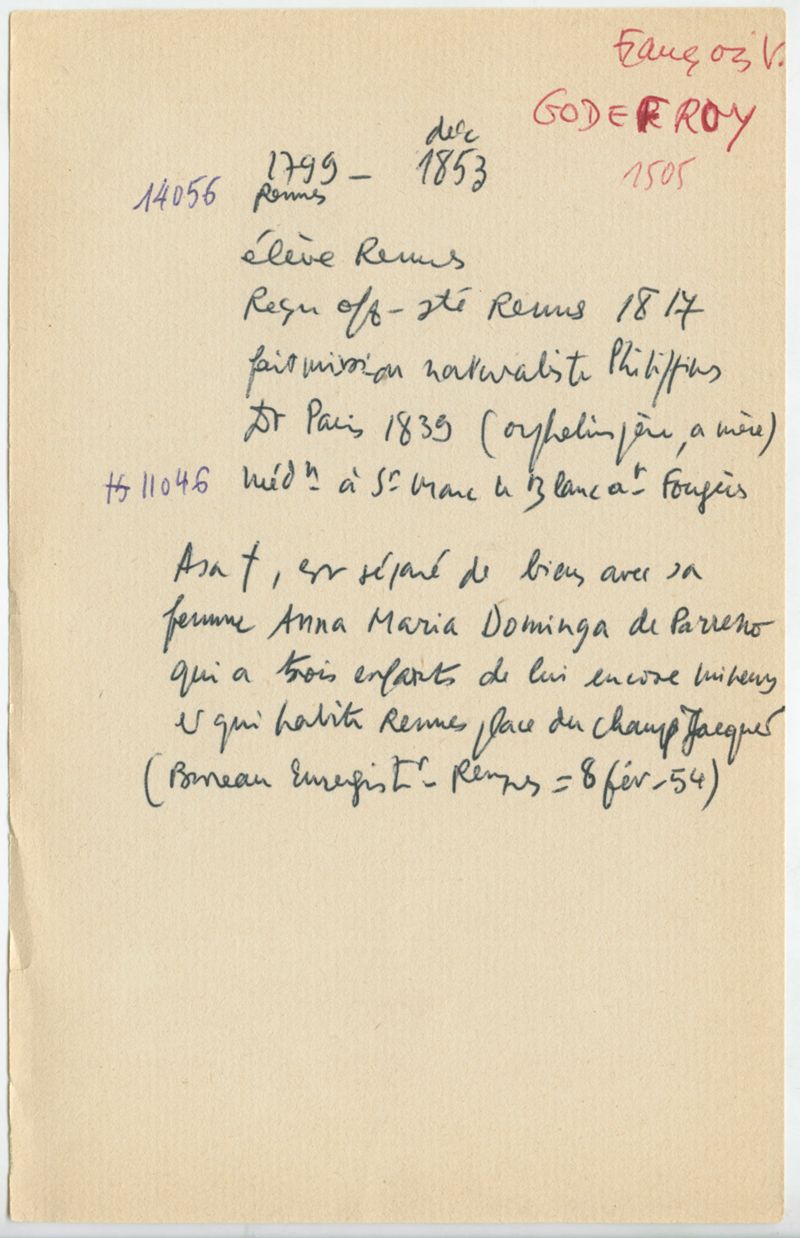 François V.
GODEFROY
1505
déc
1799 – 1853
14056 Rennes
élève Rennes
Reçu off- sté Rennes 1817
fait mission naturaliste Philippines
Dr Paris 1839 (orphelin père, a mère)
Hs 11046 Médn à St Marc le Blanc ar- Fougères
A sa †, est séparé de biens avec sa
femme Anna Maria Dominga de Parreno
qui a trois enfants de lui encore mineurs
et qui habite Rennes place du Champ Jacquet
(Bureau Enregistt- Rennes = 8 fév-54)